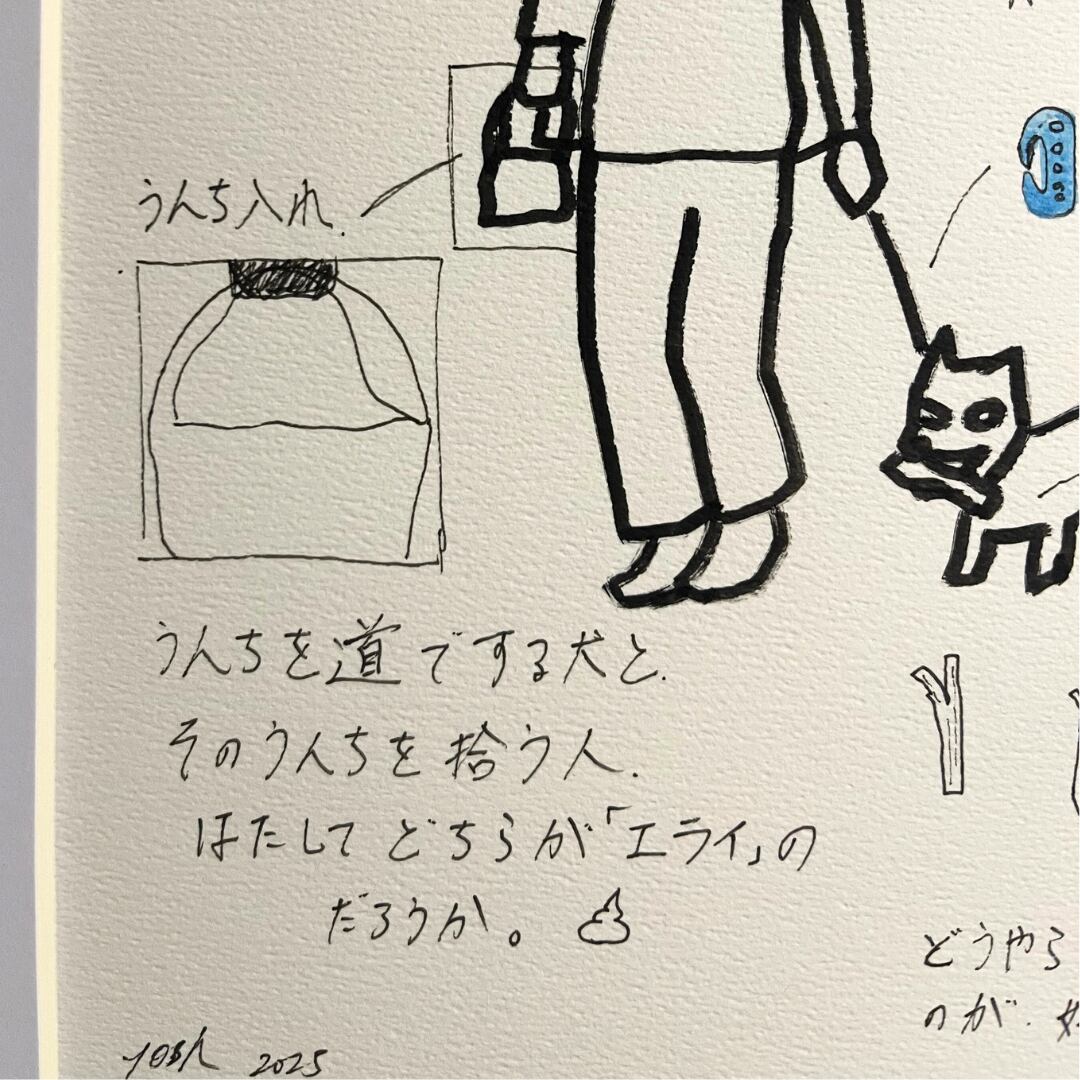 うんち入れ.
うんちを道でする犬と.
そのうんちを拾う人.
はたしてどちらが「エライ」の
だろうか。
どうやら
のが.
YOSH 2025